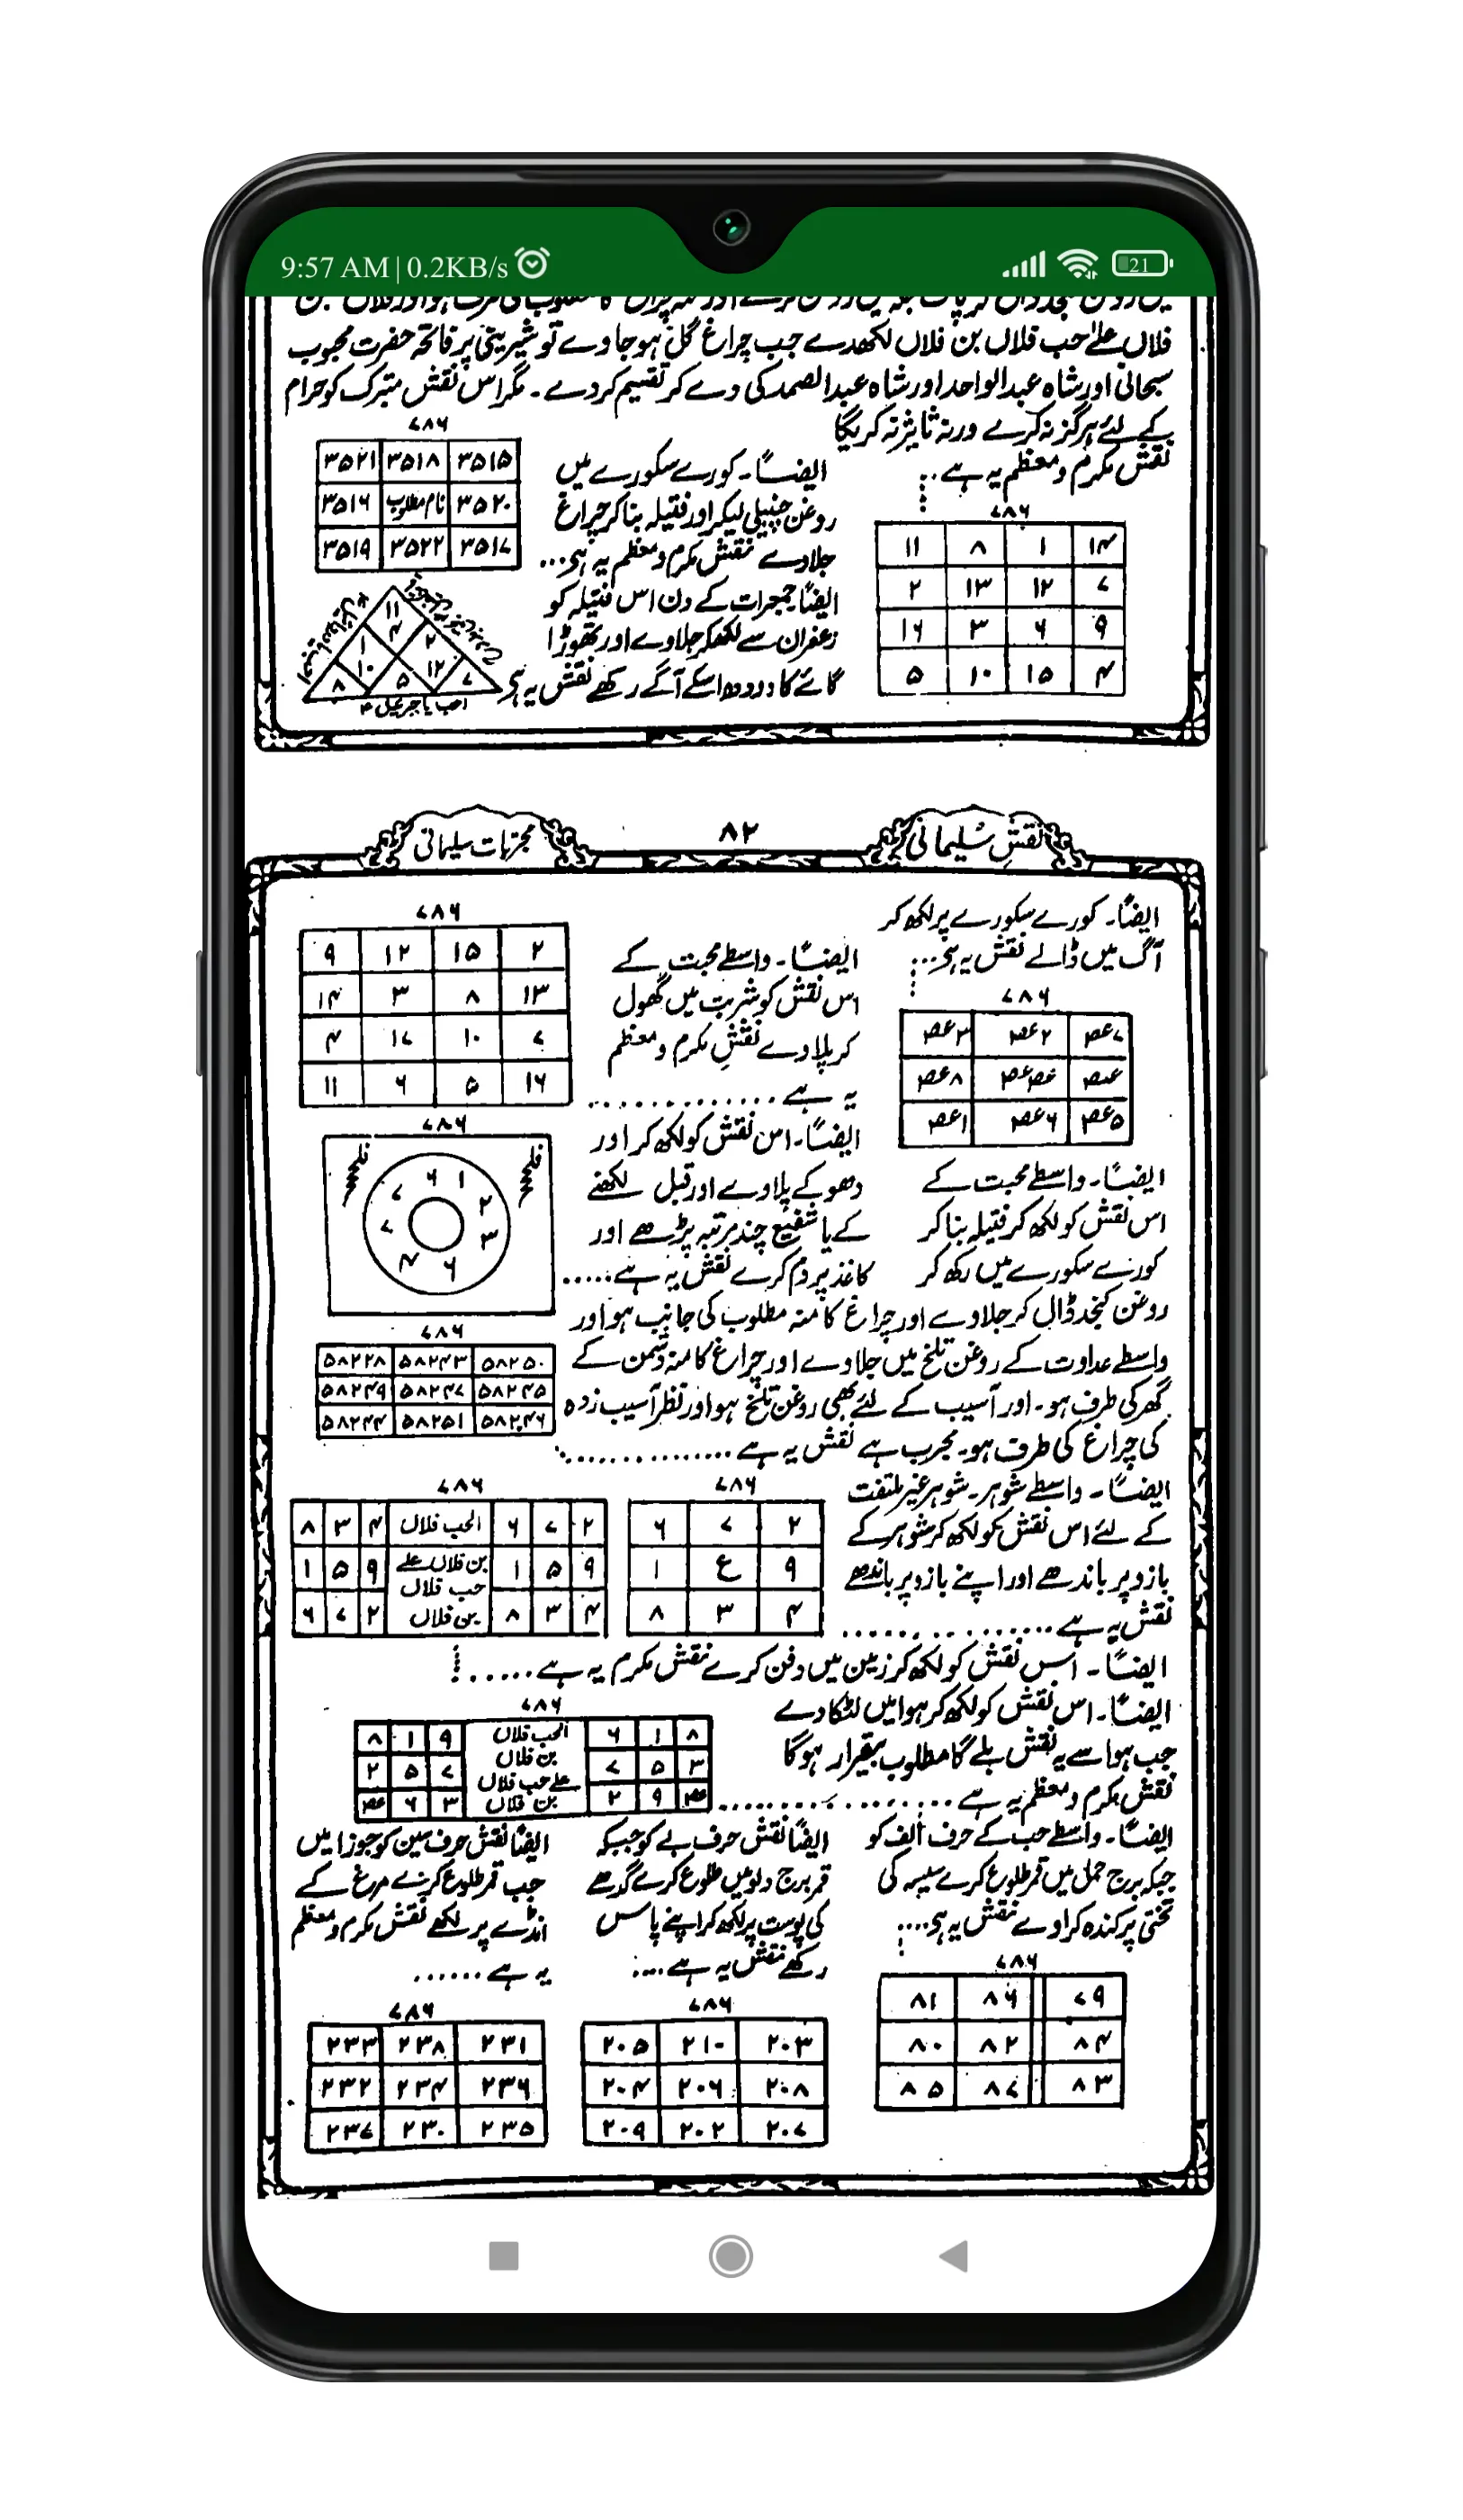 9:57 AM | 0.2KB/s
21
فلاں علےٰ حب فلاں بن فلاں لکھدے جب چراغ گل ہوجاوے تو شیرینی پر فاتحہ حضرت محبوب
سبحانی اور شاہ عبدالواحد اور شاہ عبدالصمد کی دے کر تقسیم کردے۔ مگر اس نقش متبرک کو حرام
کے لئے ہرگز نہ کرے ورنہ تاثیر نہ کریگا
نقش مکرم و معظم یہ ہے
۷۸۶
۱۱ ۸ ۱ ۱۴
۲ ۱۳ ۱۲ ۷
۱۶ ۳ ۶ ۹
۵ ۱۰ ۱۵ ۴
ایضاً۔ کورے سکورے میں
روغن چنبیلی لیکر اور فتیلہ بنا کر چراغ
جلاوے نقش مکرم و معظم یہ ہے...
۷۸۶
۳۵۲۱ ۳۵۱۸ ۳۵۱۵
۳۵۱۶ نام مطلوب ۳۵۲۰
۳۵۱۹ ۳۵۲۲ ۳۵۱۷
ایضاً جمعرات کے دن اس فتیلہ کو
زعفران سے لکھکر جلاوے اور تھوڑا
گائے کا دودھ اسکے آگے رکھے نقش یہ ہے
۱۱
۱ ۴ ۲
۸ ۱۰ ۵ ۱۲ ۷
نقشِ سُلیمانی
۸۲
مجربات سلیمانی
ایضاً۔ کورے سکورے پر لکھ کر
آگ میں ڈالے نقش یہ ہے...
۷۸۶
ایضاً۔ واسطے محبت کے
اس نقش کو شربت میں گھول
کر پلاوے نقشِ مکرم و معظم
یہ ہے ..............
۷۸۶
۹ ۱۲ ۱۵ ۲
۱۴ ۳ ۸ ۱۳
۴ ۱۷ ۱۰ ۷
۱۱ ۶ ۵ ۱۶
ایضاً۔ اس نقش کو لکھ کر اور
دھو کے پلاوے اور قبل لکھنے
کے یا شفیع چند مرتبہ پڑھے اور
کاغذ پر دم کرے نقش یہ ہے.....
۷۸۶
۶ ۱ ۲ ۳ ۶ ۴ ۷ ۷
ایضاً۔ واسطے محبت کے
اس نقش کو لکھ کر فتیلہ بنا کر
کورے سکورے میں رکھ کر
روغن کنجد ڈال کر جلاوے اور چراغ کا منہ مطلوب کی جانب ہو اور
واسطے عداوت کے روغن تلخ میں جلاوے اور چراغ کا منہ دشمن کے
گھر کی طرف ہو۔ اور آسیب کے لئے بھی روغن تلخ ہو اور نظر آسیب زدہ
کی چراغ کی طرف ہو۔ مجرب ہے نقش یہ ہے ..............
۷۸۶
۵۸۲۲۸ ۵۸۲۴۳ ۵۸۲۵۰
۵۸۲۴۹ ۵۸۲۴۷ ۵۸۲۴۵
۵۸۲۴۴ ۵۸۲۵۱ ۵۸۲۴۶
ایضاً۔ واسطے شوہر۔ شوہر غیر ملتفت
کے لئے اس نقش کو لکھ کر شوہر کے
بازو پر باندھے اور اپنے بازو پر باندھے
نقش یہ ہے ..............
۷۸۶
۶ ۷ ۲
۱ ع ۹
۸ ۳ ۴
۷۸۶
۸ ۳ ۴ الحب فلاں ۶ ۷ ۲
۱ ۵ ۹ بن فلاں علے حب فلاں ۱ ۵ ۹
۶ ۷ ۲ بن فلاں ۸ ۳ ۴
ایضاً۔ اس نقش کو لکھ کر زمین میں دفن کرے نقش مکرم یہ ہے.....
ایضاً۔ اس نقش کو لکھ کر ہوا میں لٹکا دے
جب ہوا سے یہ نقش ہلے گا مطلوب بیقرار ہوگا
نقش مکرم و معظم یہ ہے ..............
۷۸۶
۸ ۱ ۹ الحب فلاں ۶ ۱ ۸
۲ ۵ ۷ بن فلاں علے حب فلاں ۷ ۵ ۳
۶ ۳ بن فلاں ۲ ۹
ایضاً۔ واسطے حب کے حرف الف کو
جبکہ برج حمل میں قمر طلوع کرے سیسہ کی
تختی پر کندہ کراوے نقش یہ ہے....
۷۸۶
۸۱ ۸۶ ۷۹
۸۰ ۸۲ ۸۴
۸۵ ۸۷ ۸۳
ایضاً نقش حرف بے کو جبکہ
قمر برج دلو میں طلوع کرے گدھے
کی پوست پر لکھ کر اپنے پاس
رکھے نقش یہ ہے....
۷۸۶
۲۰۵ ۲۱۰ ۲۰۳
۲۰۴ ۲۰۶ ۲۰۸
۲۰۹ ۲۰۲ ۲۰۷
ایضاً نقش حرف سین کو جوزا میں
جب قمر طلوع کرے مرغ کے
انڈے پر لکھے نقش مکرم و معظم
یہ ہے ......
۷۸۶
۲۳۳ ۲۳۸ ۲۳۱
۲۳۲ ۲۳۴ ۲۳۶
۲۳۷ ۲۳۰ ۲۳۵